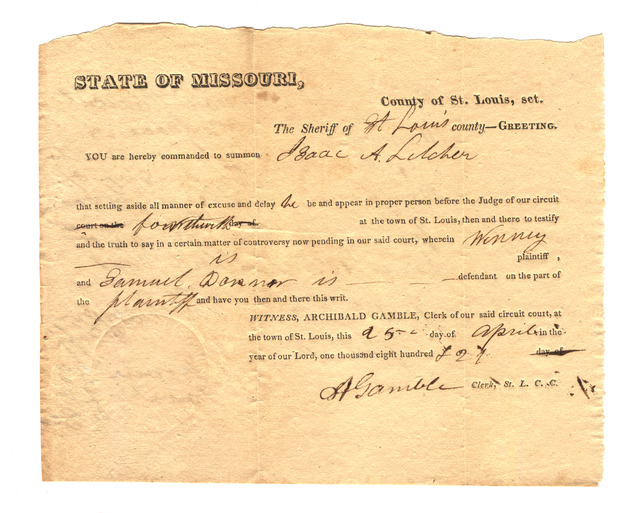 STATE OF MISSOURI,
County of St. Louis, sct.
The Sheriff of St Louis county—GREETING.
YOU are hereby commanded to summon Isaac A. Letcher
that setting aside all manner of excuse and delay he be and appear in proper person before the Judge of our circuit
court on the forthwith day of at the town of St. Louis, then and there to testify
and the truth to say in a certain matter of controversy now pending in our said court, wherein Winney
is plaintiff ,
and Samuel Donner is defendant on the part of
the plaintiff and have you then and there this writ.
WITNESS, ARCHIBALD GAMBLE, Clerk of our said circuit court, at
the town of St. Louis, this 25 day of April in the
year of our Lord, one thousand eight hundred & 21 day of
A Gamble Clerk, St. L. C. C.